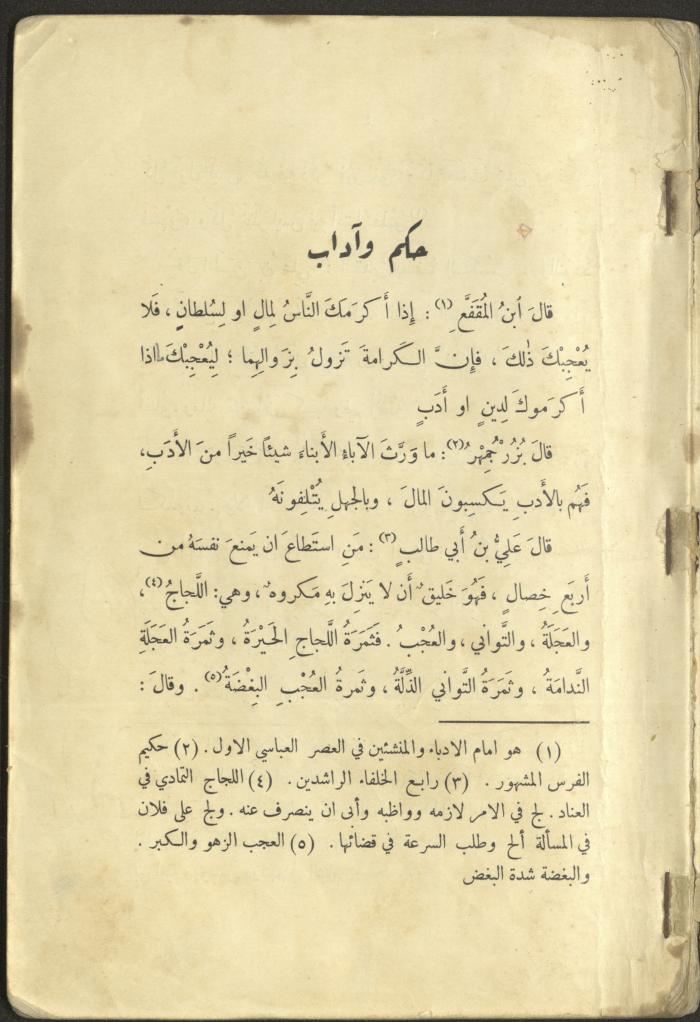 حكم وآداب
قالَ ٱبنُ المُقَفَّعِ (١) : إِذا أَكرَمَكَ النَّاسُ لِمالٍ او لِسُلطانٍ ، فَلا
يُعْجِبْكَ ذٰلكَ ، فإِنَّ الكَرامةَ تَزولُ بِزَوالِهِما ؛ لِيُعْجِبْكَ اذا
أَكرَموكَ لِدينٍ او أَدَبٍ
قالَ بُزُرْجُمِهْرُ (٢) : ما وَرَّثَ الآباءُ الأَبناءَ شيئاً خَيراً منَ الأَدَبِ،
فَهُم بالأَدبِ يَكسِبونَ المالَ ، وبالجهلِ يُتْلِفونَهُ
قالَ عَلِيُّ بنُ أَبي طالبٍ (٣) : مَنِ استَطاعَ ان يَمنَعَ نفسَهُ من
أَربَعِ خِصالٍ ، فَهُوَ خَليقٌ أَن لا يَنزِلَ بهِ مَكروهٌ ، وهي: اللَّجاجُ (٤) ،
والعَجَلَةُ ، والتَّواني ، والعُجْبُ . فَثَمَرَةُ اللَّجاجِ الحَيْرَةُ ، وثَمَرَةُ العَجَلَةِ
النَّدامَةُ ، وثَمَرَةُ التَّواني الذِّلَّةُ ، وثَمرةُ العُجْبِ البِغْضَةُ (٥) . وقالَ :
(١) هو امام الادباء والمنشئين في العصر العباسي الاول . (٢) حكيم
الفرس المشهور . (٣) رابع الخلفاء الراشدين . (٤) اللجاج التمادي في
العناد . لج في الامر لازمه وواظبه وأبى ان ينصرف عنه . ولج على فلان
في المسألة ألح وطلب السرعة في قضائها . (٥) العجب الزهو والكبر .
والبغضة شدة البغض